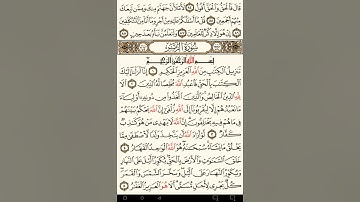 قَالَ فَٱلْحَقُّ وَٱلْحَقَّ أَقُولُ لَأَمْلَأَنَّ جَهَنَّمَ مِنكَ وَمِمَّن تَبِعَكَ
مِنْهُمْ أَجْمَعِينَ قُلْ مَآ أَسْـَٔلُكُمْ عَلَيْهِ مِنْ أَجْرٍ وَمَآ أَنَا۠ مِنَ ٱلْمُتَكَلِّفِينَ
إِنْ هُوَ إِلَّا ذِكْرٌ لِّلْعَٰلَمِينَ وَلَتَعْلَمُنَّ نَبَأَهُۥ بَعْدَ حِينٍۭ
سُورَةُ الزُّمَرِ
بِسْمِ ٱللَّهِ ٱلرَّحْمَٰنِ ٱلرَّحِيمِ
تَنزِيلُ ٱلْكِتَٰبِ مِنَ ٱللَّهِ ٱلْعَزِيزِ ٱلْحَكِيمِ إِنَّآ أَنزَلْنَآ إِلَيْكَ
ٱلْكِتَٰبَ بِٱلْحَقِّ فَٱعْبُدِ ٱللَّهَ مُخْلِصًا لَّهُ ٱلدِّينَ أَلَا
لِلَّهِ ٱلدِّينُ ٱلْخَالِصُ وَٱلَّذِينَ ٱتَّخَذُوا۟ مِن دُونِهِۦٓ أَوْلِيَآءَ مَا
نَعْبُدُهُمْ إِلَّا لِيُقَرِّبُونَآ إِلَى ٱللَّهِ زُلْفَىٰٓ إِنَّ ٱللَّهَ يَحْكُمُ بَيْنَهُمْ
فِى مَا هُمْ فِيهِ يَخْتَلِفُونَ إِنَّ ٱللَّهَ لَا يَهْدِى مَنْ هُوَ كَٰذِبٌ
كَفَّارٌ لَّوْ أَرَادَ ٱللَّهُ أَن يَتَّخِذَ وَلَدًا لَّٱصْطَفَىٰ مِمَّا
يَخْلُقُ مَا يَشَآءُ سُبْحَٰنَهُۥ هُوَ ٱللَّهُ ٱلْوَٰحِدُ ٱلْقَهَّارُ
خَلَقَ ٱلسَّمَٰوَٰتِ وَٱلْأَرْضَ بِٱلْحَقِّ يُكَوِّرُ ٱلَّيْلَ عَلَى ٱلنَّهَارِ
وَيُكَوِّرُ ٱلنَّهَارَ عَلَى ٱلَّيْلِ وَسَخَّرَ ٱلشَّمْسَ وَٱلْقَمَرَ
كُلٌّ يَجْرِى لِأَجَلٍ مُّسَمًّى أَلَا هُوَ ٱلْعَزِيزُ ٱلْغَفَّٰرُ